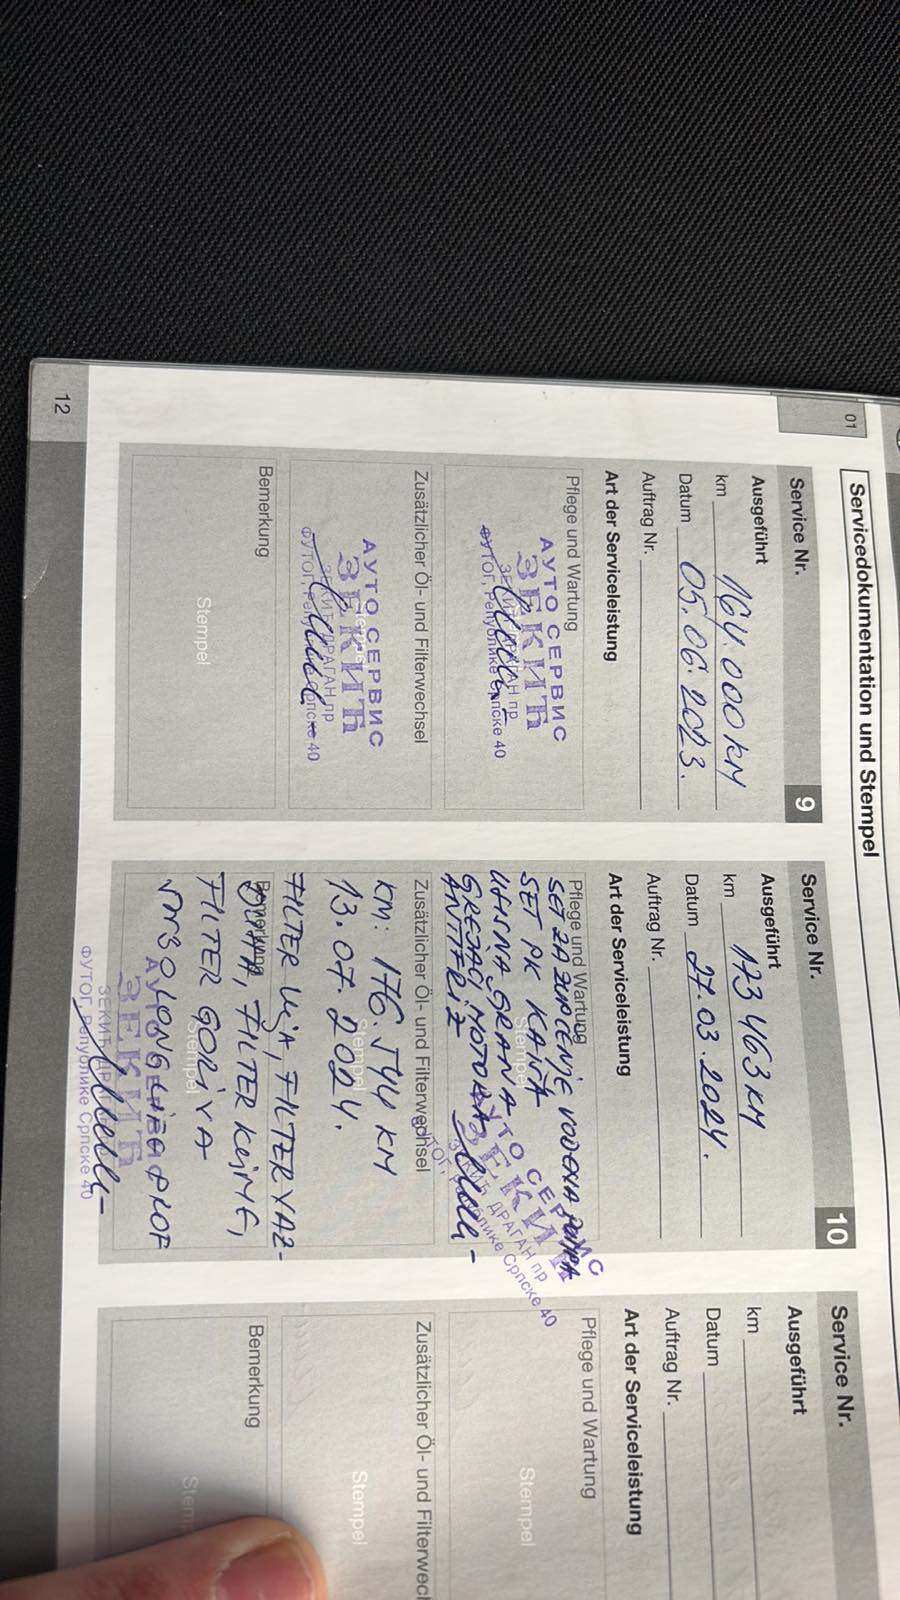 01
Servicedokumentation und Stempel
Service Nr. 9
Ausgeführt
km 164.000 KM
Datum 05.06.2023.
Auftrag Nr.
Art der Serviceleistung
Pflege und Wartung
АУТО СЕРВИС
ЗЕКИЋ
ЗЕКИЋ ДРАГАН пр
ФУТОГ, Републике Српске 40
Zusätzlicher Öl- und Filterwechsel
АУТО СЕРВИС
ЗЕКИЋ
ЗЕКИЋ ДРАГАН пр
ФУТОГ, Републике Српске 40
Bemerkung
Stempel
Service Nr. 10
Ausgeführt
km 173 463 KM
Datum 27.03.2024.
Auftrag Nr.
Art der Serviceleistung
Pflege und Wartung
SET ZA ZUPČENJE VODENA PUMPA
SET PK KAIŠA
USISNA GRANA
GREJAČI MOTORA
ANTIFRIZ
Stempel
АУТО СЕРВИС
ЗЕКИЋ
ЗЕКИЋ ДРАГАН пр
ФУТОГ, Републике Српске 40
Zusätzlicher Öl- und Filterwechsel
KM: 176.544 KM
13.07.2024.
Stempel
FILTER ULJA, FILTER VAZ-
Bemerkung
DUHA, FILTER KLIME,
FILTER GORIVA
Stempel
LONG
АУТО СЕРВИС
ЗЕКИЋ
ЗЕКИЋ ДРАГАН пр
ФУТОГ, Републике Српске 40
Service Nr.
Ausgeführt
km
Datum
Auftrag Nr.
Art der Serviceleistung
Pflege und Wartung
Stempel
Zusätzlicher Öl- und Filterwech
Stempel
Bemerkung
Stem
12